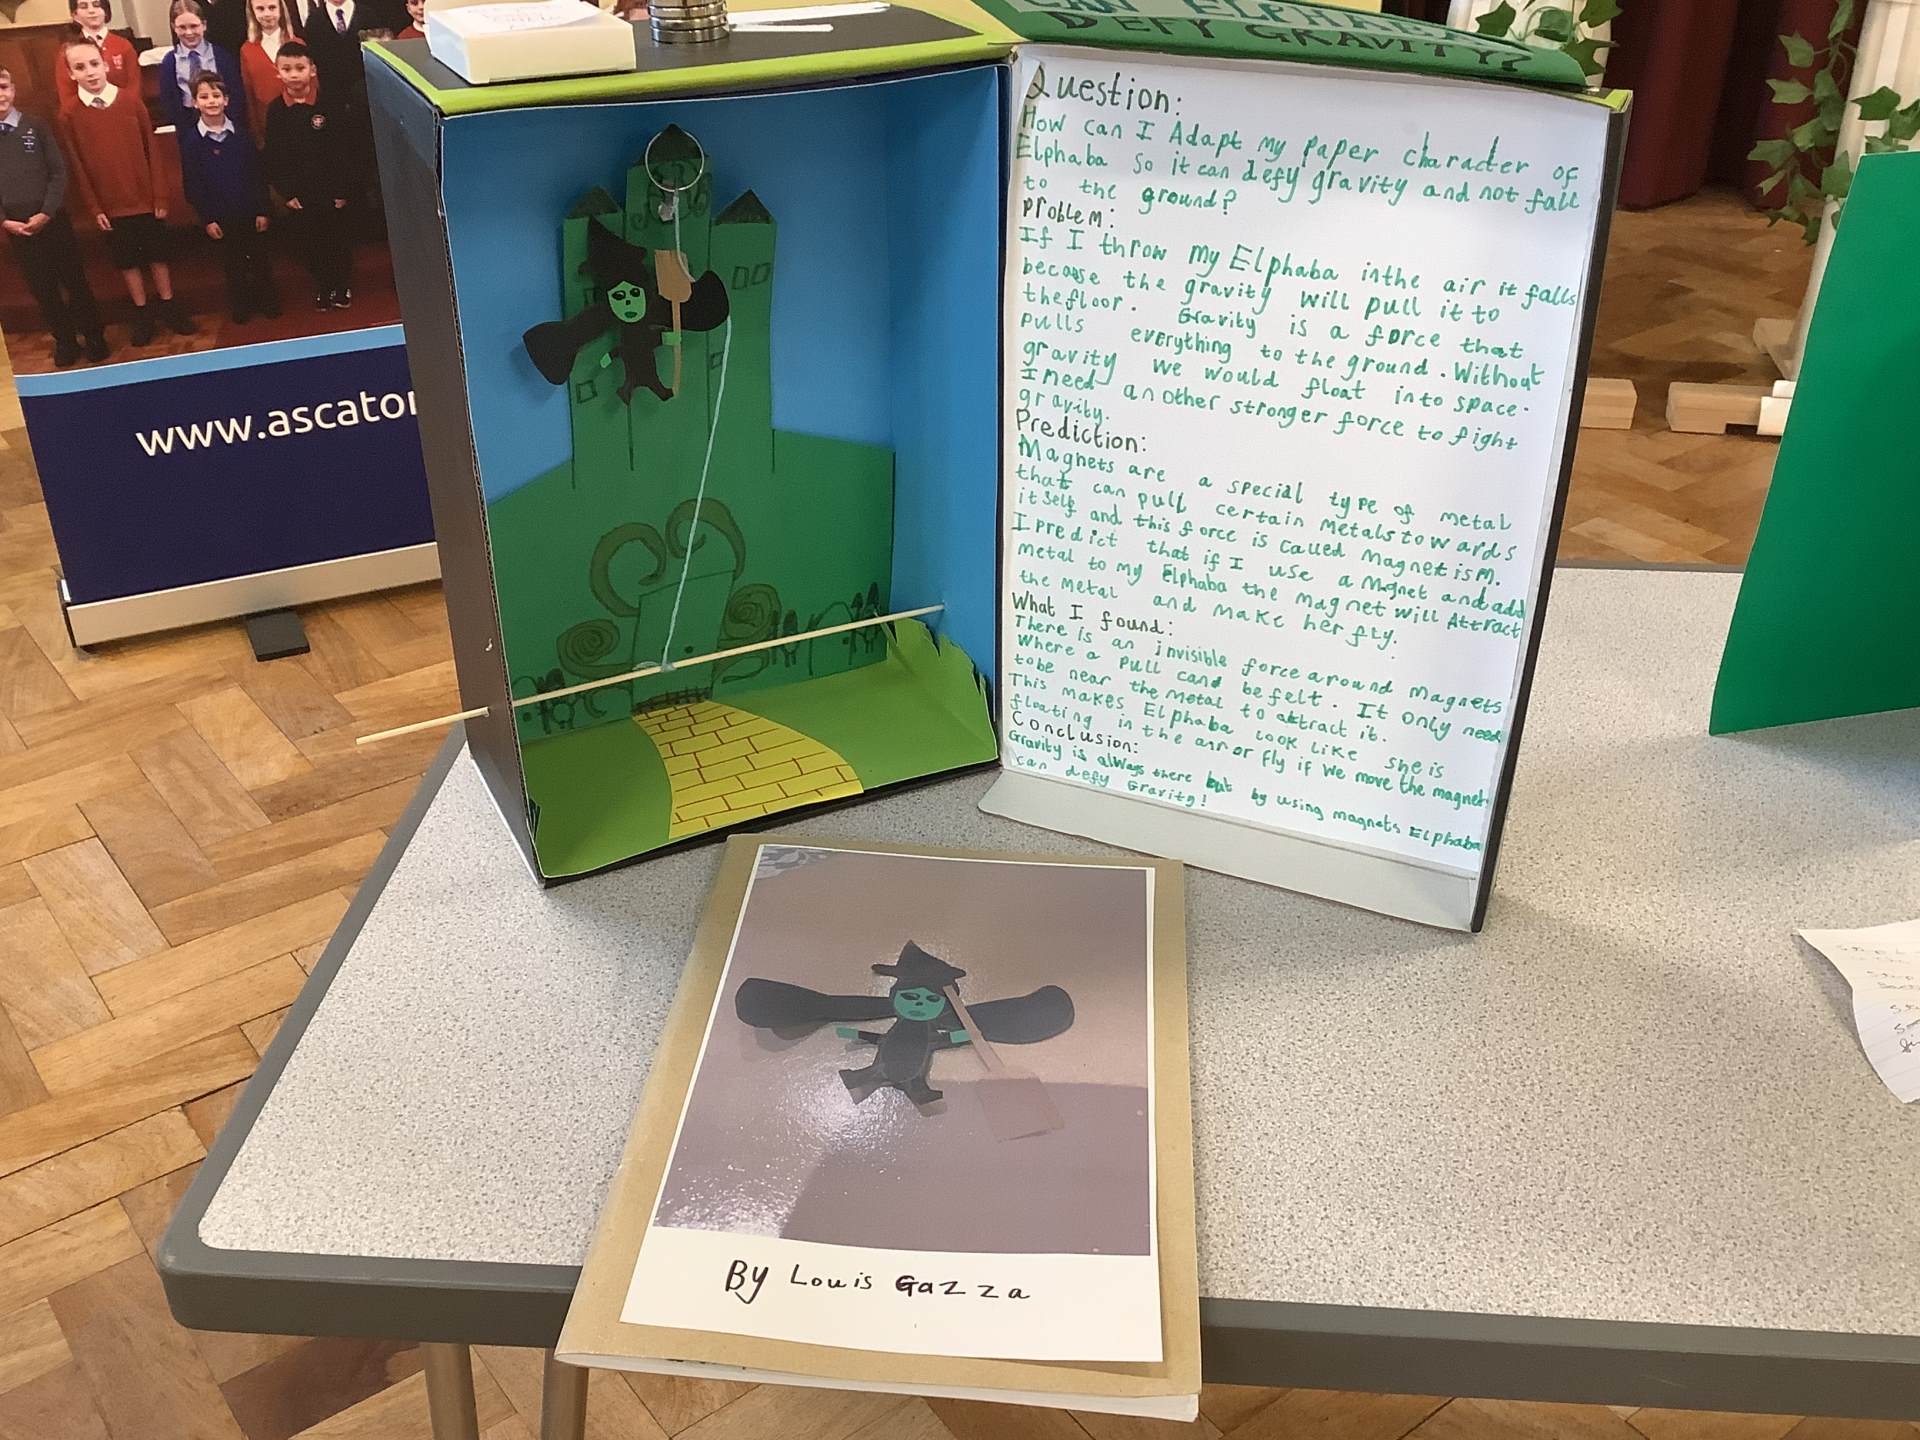 CAN ELPHABA
DEFY GRAVITY?
www.ascato
Question:
How can I Adapt my paper character of
Elphaba so it can defy gravity and not fall
to the ground?
Problem:
If I throw my Elphaba inthe air it falls
because the gravity will pull it to
thefloor. Gravity is a force that
pulls everything to the ground. Without
gravity we would float into space.
I need another stronger force to fight
gravity.
Prediction:
Magnets are a special type of metal
that can pull certain metals towards
itself and this force is called magnetism.
I predict that if I use a magnet and add
metal to my Elphaba the magnet will Attract
the metal and make her fly.
What I found:
There is an invisible force around magnets
where a pull cand be felt. It only need
tobe near the metal to attract it.
This makes Elphaba look like she is
floating in the air or fly if we move the magnet
Conclusion:
Gravity is always there but by using magnets Elphaba
can defy Gravity!
By Louis Gazza